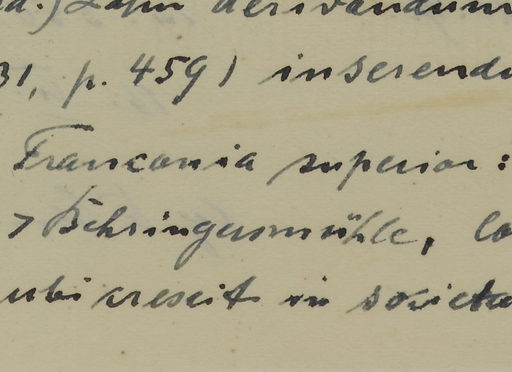 d.) Zahn derivandum
31, p. 459) inserendu
Franconia superior:
> Behringersmühle, lo
ubi crescit in societa